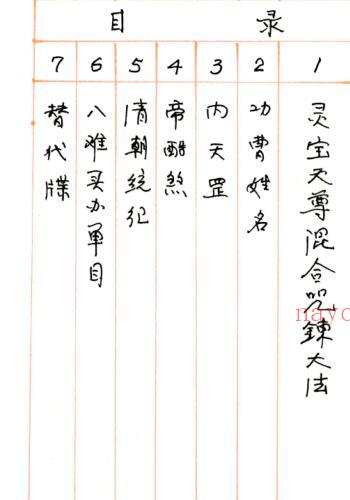 目录
1 灵宝天尊混合咒鍊大法
2 功曹姓名
3 内天罡
4 帝酷煞
5 清朝统纪
6 八难买办单目
7 替代牒
nayc